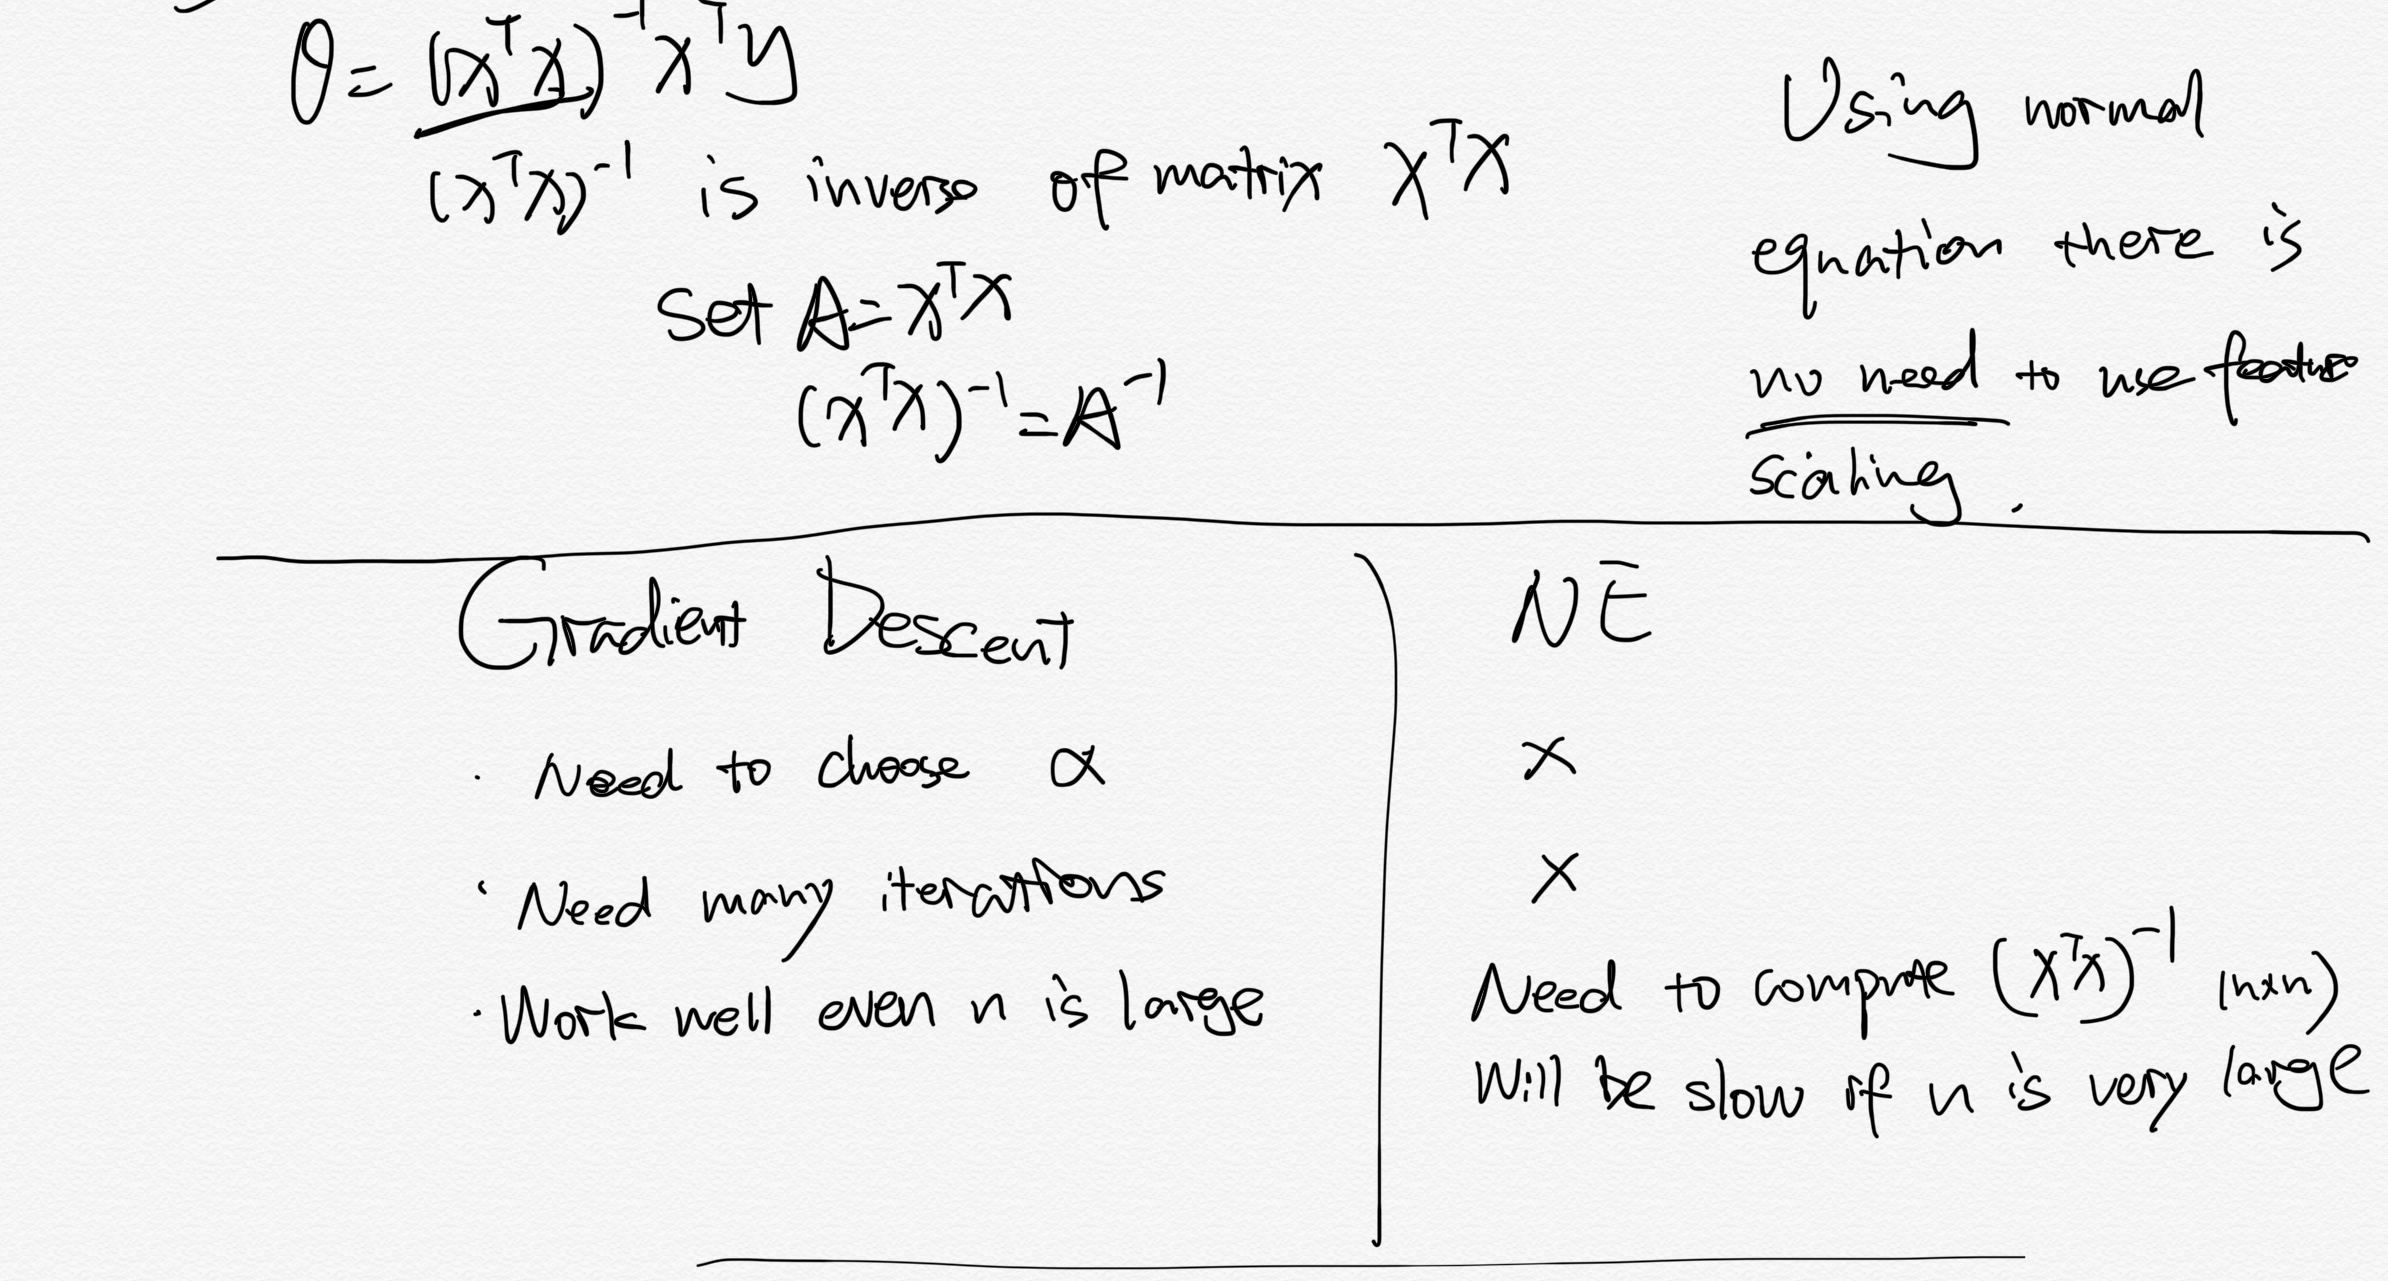 θ = (XᵀX)⁻¹Xᵀy
(XᵀX)⁻¹ is inverse of matrix XᵀX
Set A = XᵀX
(XᵀX)⁻¹ = A⁻¹
Using normal
equation there is
no need to use feature
scaling.
Gradient Descent
· Need to choose α
· Need many iterations
· Work well even n is large
NE
×
×
Need to compute (XᵀX)⁻¹ (n×n)
Will be slow if n is very large